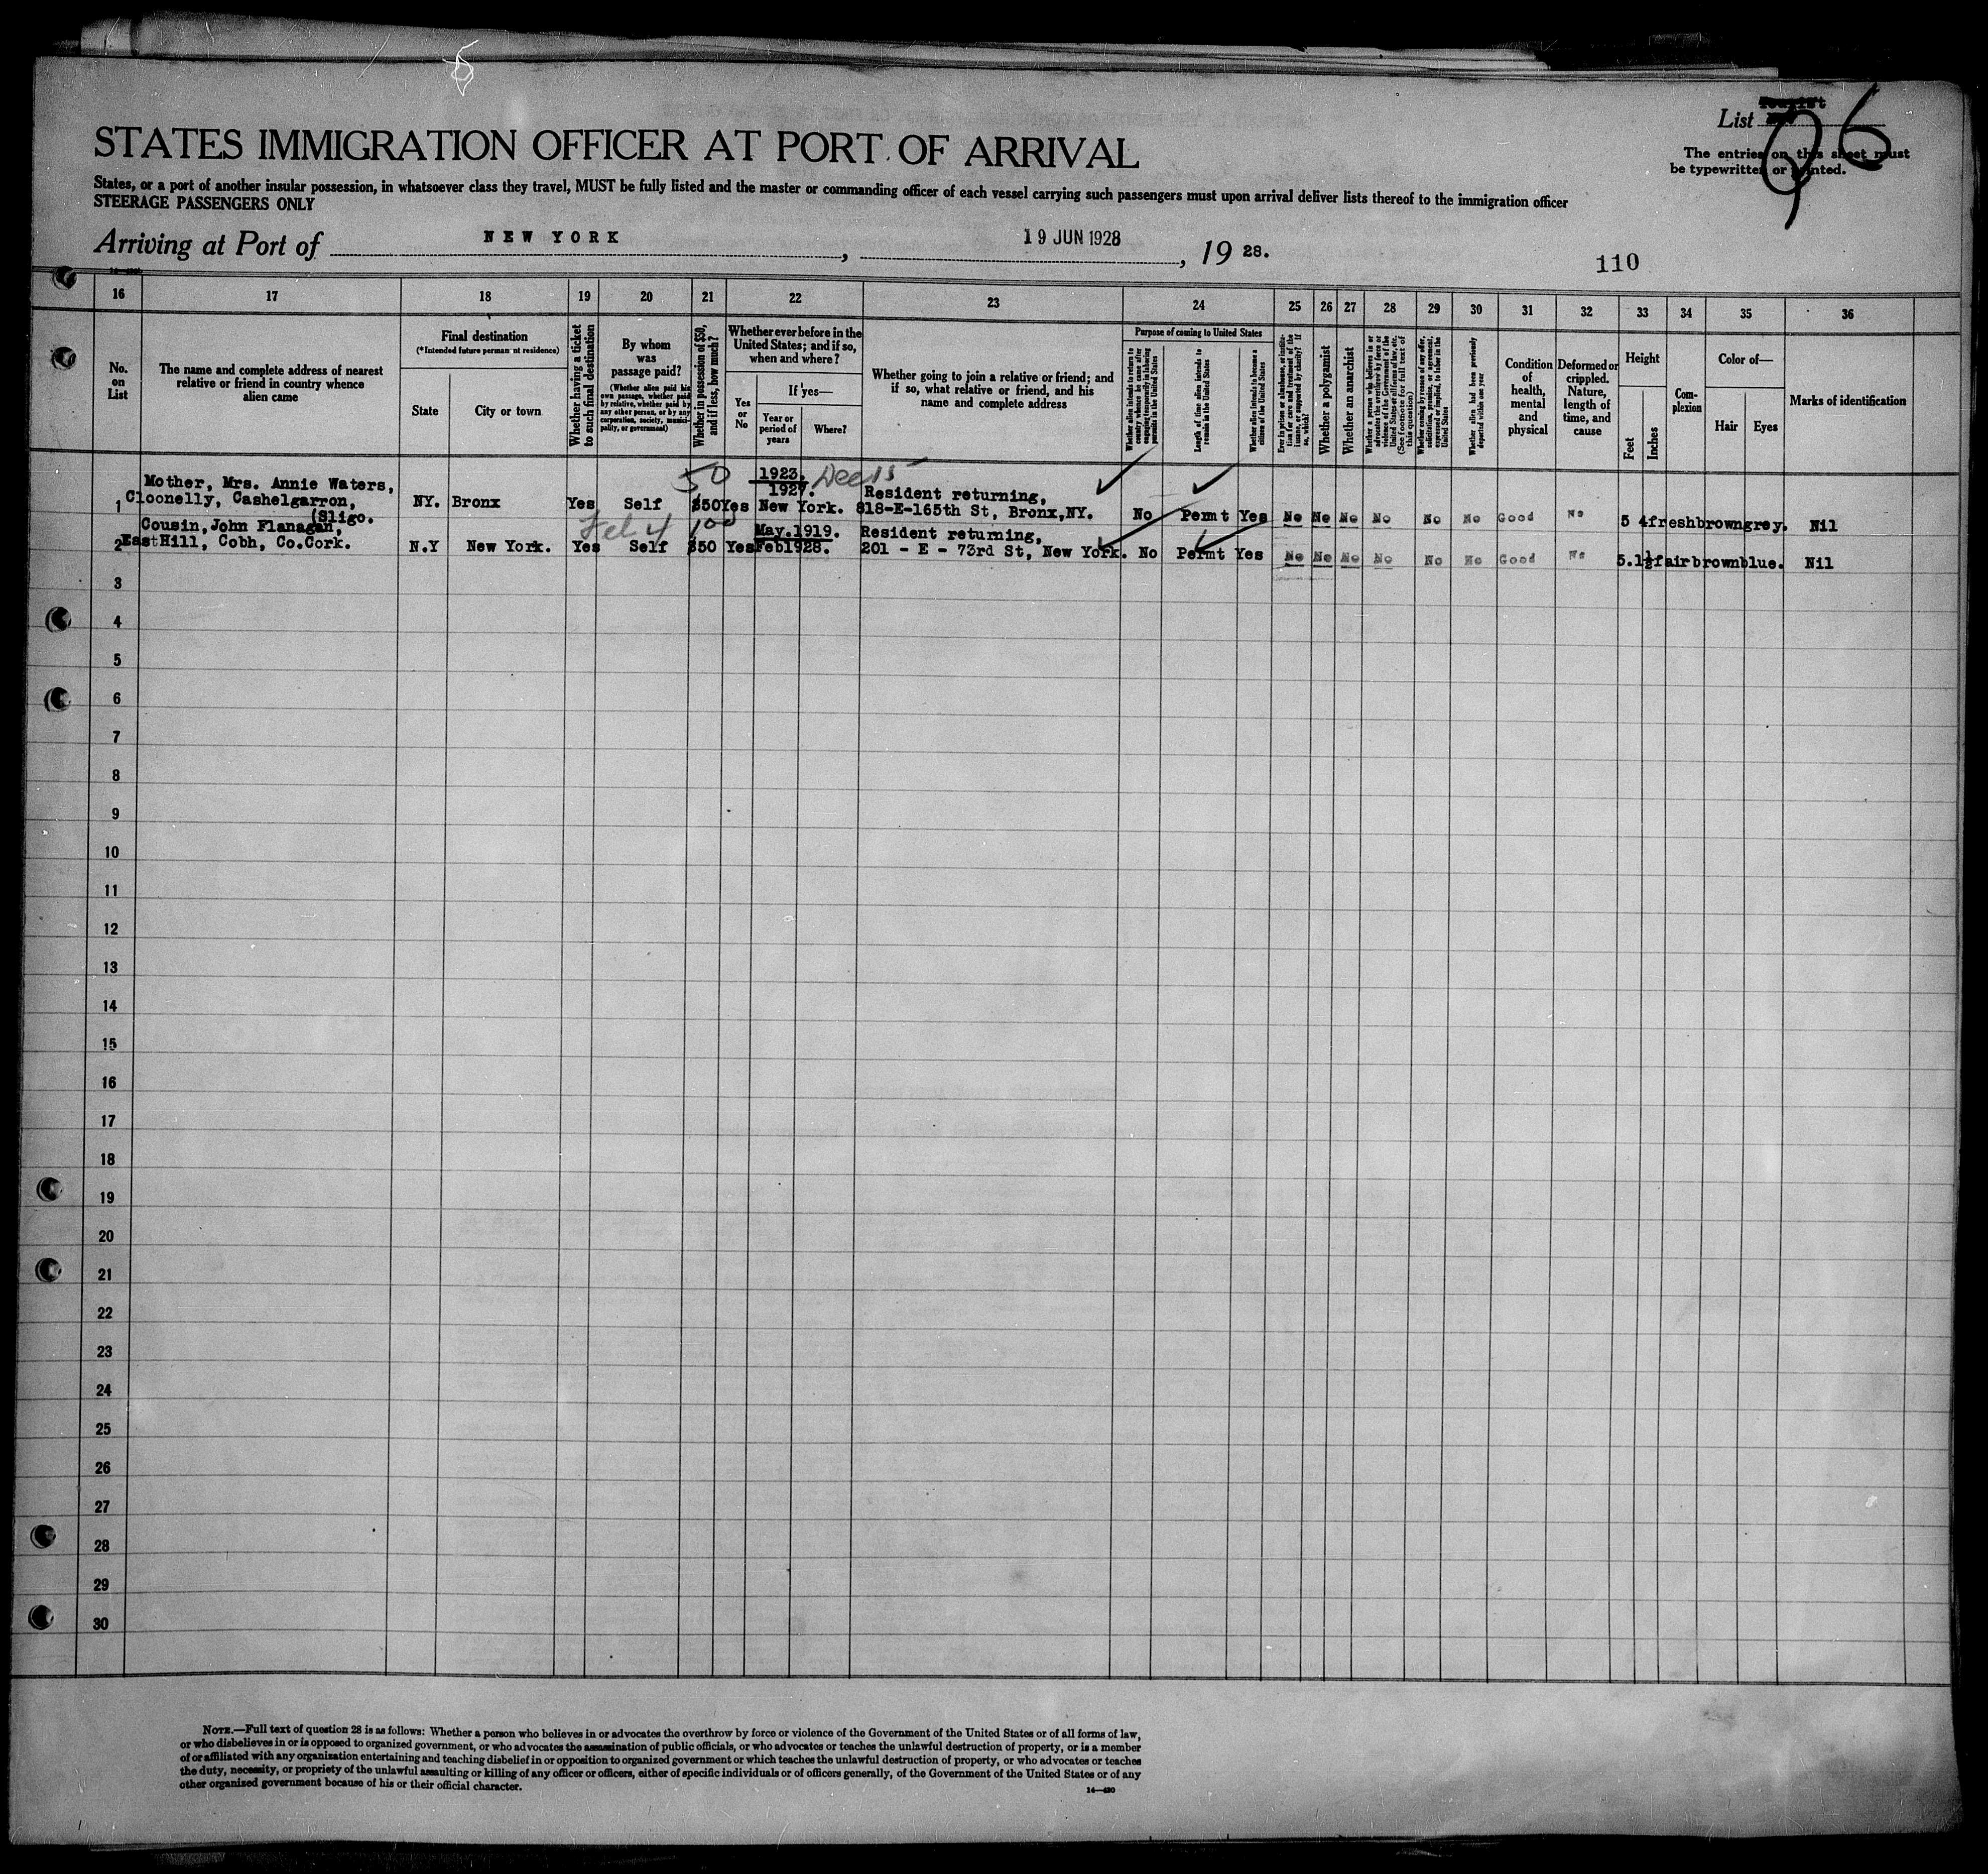 List Tourist
96
STATES IMMIGRATION OFFICER AT PORT OF ARRIVAL
The entries on this sheet must
be typewritten or printed.
States, or a port of another insular possession, in whatsoever class they travel, MUST be fully listed and the master or commanding officer of each vessel carrying such passengers must upon arrival deliver lists thereof to the immigration officer
STEERAGE PASSENGERS ONLY
Arriving at Port of NEW YORK, 19 JUN 1928, 19 28.
110
16 17 18 19 20 21 22 23 24 25 26 27 28 29 30 31 32 33 34 35 36
No.
on
List
The name and complete address of nearest
relative or friend in country whence
alien came
Final destination
(*Intended future permanent residence)
State
City or town
Whether having a ticket
to such final destination
By whom
was
passage paid?
(Whether alien paid his
own passage, whether paid
by relative, whether paid by
any other person, or by any
corporation, society, munici-
pality, or government)
Whether in possession of $50,
and if less, how much?
Whether ever before in the
United States; and if so,
when and where?
Yes
or
No
If yes—
Year or
period of
years
Where?
Whether going to join a relative or friend; and
if so, what relative or friend, and his
name and complete address
Purpose of coming to United States
Whether alien intends to return to
country whence he came after
engaging temporarily in laboring
pursuits in the United States
Length of time alien intends to
remain in the United States
Whether alien intends to become a
citizen of the United States
Ever in prison or almshouse, or institu-
tion for care and treatment of the
insane, or supported by charity? If
so, which?
Whether a polygamist
Whether an anarchist
Whether a person who believes in or
advocates the overthrow by force or
violence of the Government of the
United States or all forms of law, etc.
(See footnote for full text of
this question)
Whether coming by reason of any offer,
solicitation, promise, or agreement,
expressed or implied, to labor in the
United States
Whether alien had been previously
deported within one year
Condition
of
health,
mental
and
physical
Deformed or
crippled.
Nature,
length of
time, and
cause
Height
Feet
Inches
Com-
plexion
Color of—
Hair
Eyes
Marks of identification
50 Dec 15
Mother, Mrs. Annie Waters, 1923. Resident returning,
1 Cloonelly, Cashelgarron, NY. Bronx Yes Self $50 Yes 1927. New York. 818-E-165th St, Bronx,NY. No Permt Yes No No No No No No Good No 5 4 fresh brown grey. Nil
(Sligo.
Feb 4 100
Cousin, John Flanagan, May.1919. Resident returning,
2 EastHill, Cobh, Co.Cork. N.Y New York. Yes Self $50 Yes Feb1928. 201 - E - 73rd St, New York. No Permt Yes No No No No No No Good No 5.1½ fair brown blue. Nil
3
4
5
6
7
8
9
10
11
12
13
14
15
16
17
18
19
20
21
22
23
24
25
26
27
28
29
30
NOTE.—Full text of question 28 is as follows: Whether a person who believes in or advocates the overthrow by force or violence of the Government of the United States or of all forms of law,
or who disbelieves in or is opposed to organized government, or who advocates the assassination of public officials, or who advocates or teaches the unlawful destruction of property, or is a member
of or affiliated with any organization entertaining and teaching disbelief in or opposition to organized government or which teaches the unlawful destruction of property, or who advocates or teaches
the duty, necessity, or propriety of the unlawful assaulting or killing of any officer or officers, either of specific individuals or of officers generally, of the Government of the United States or of any
other organized government because of his or their official character.
14—430